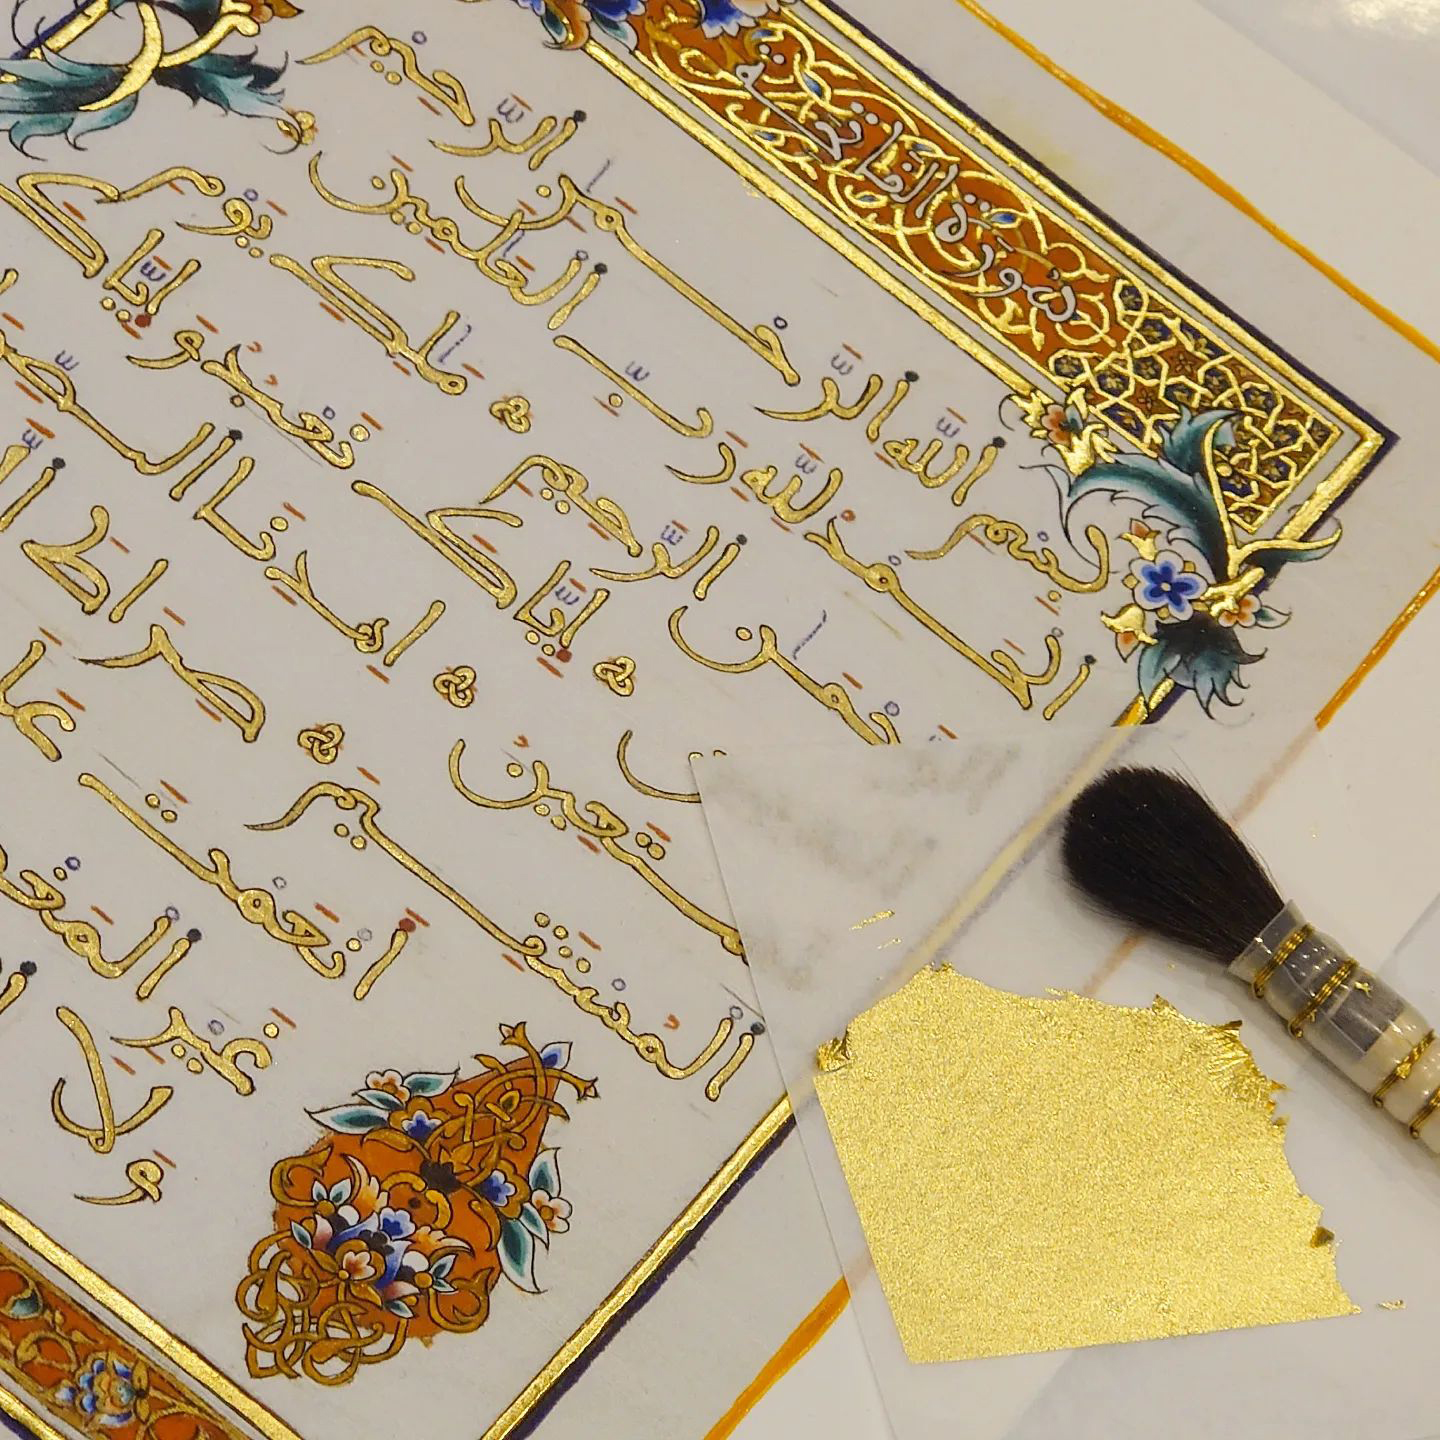 سُورَةُ الْفَاتِحَة
بِسْمِ اللَّهِ الرَّحْمَٰنِ الرَّحِيمِ
الْحَمْدُ لِلَّهِ رَبِّ الْعَٰلَمِينَ
حْمَٰنِ الرَّحِيمِ مَٰلِكِ يَوْمِ
إِيَّاكَ نَعْبُدُ وَإِيَّاكَ
سْتَعِينُ اهْدِنَا الصِّرَ
الْمُسْتَقِيمَ صِرَاطَ
أَنْعَمْتَ
غَيْرِ الْمَغْ
وَلَا